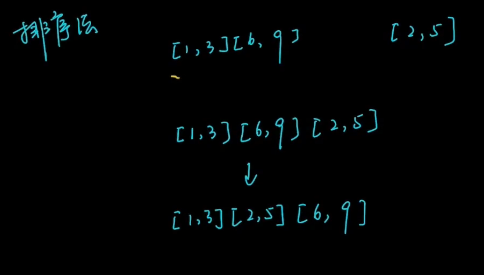 排序法
[1,3][6,9] [2,5]
[1,3][6,9][2,5]
↓
[1,3][2,5][6,9]